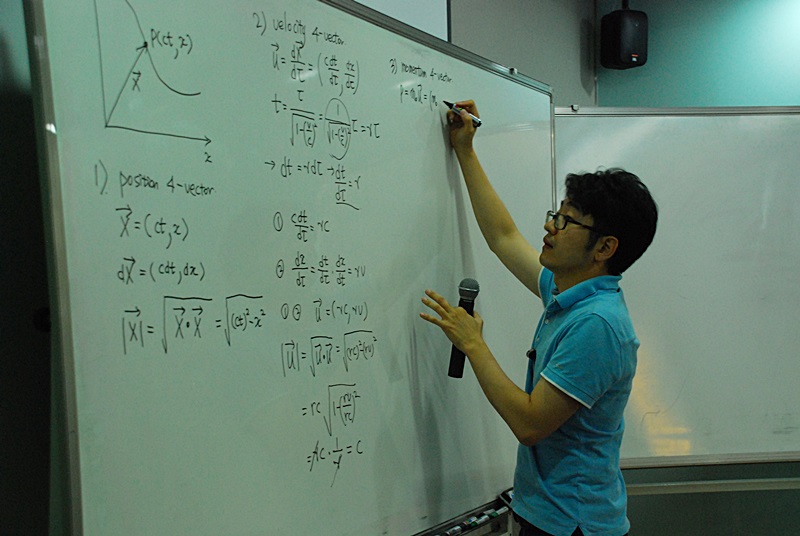 P(ct, x)
X⃗
x
1) position 4-vector
X⃗ = (ct, x)
dX⃗ = (cdt, dx)
|X⃗| = √(X⃗•X⃗) = √((ct)²-x²)
2) velocity 4-vector
u⃗ = dX⃗/dτ = (cdt/dτ, dx/dτ)
t = τ/√(1-(v/c)²) = 1/√(1-(v/c)²) τ = rτ
→ dt = rdτ → dt/dτ = r
① cdt/dτ = rc
② dx/dτ = dt/dτ dx/dt = rv
①② u⃗ = (rc, rv)
|u⃗| = √(u⃗•u⃗) = √((rc)²-(rv)²)
= rc √(1-(rv/rc)²)
= rc · 1/r = c
3) momentum 4-vector
P = m₀u⃗ = (m₀